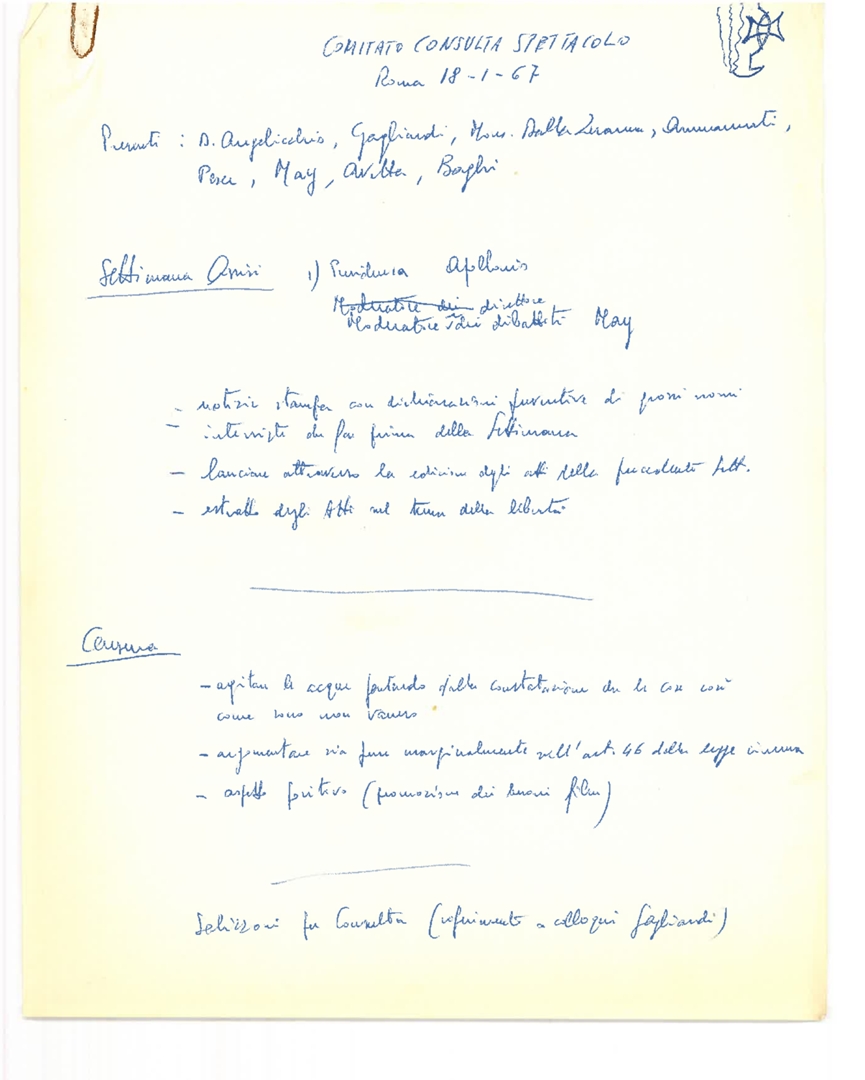 COMITATO CONSULTA SPETTACOLO
Roma 18-1-67
Presenti : D. Angelicchio, Gagliardi, Mons. Dalla Zuanna, Ammannati,
Pesce, May, Avetta, Baghi
Settimana Assisi 1) Presidenza Apollonio
Moderatore dei direttore
Moderatore dei dibattiti May
- notizie stampa con dichiarazioni preventive di grossi nomi
- interviste da far prima della Settimana
- lanciare attraverso la edizione degli atti della precedente Sett.
- estratto degli Atti sul tema della libertà
Censura
- agitare le acque partendo dalla constatazione che le cose così
come sono non vanno
- argomentare sia pure marginalmente sull'art. 46 della legge cinema
- aspetto positivo (promozione dei buoni film)
per Consulta (riferimento a colloqui Gagliardi)